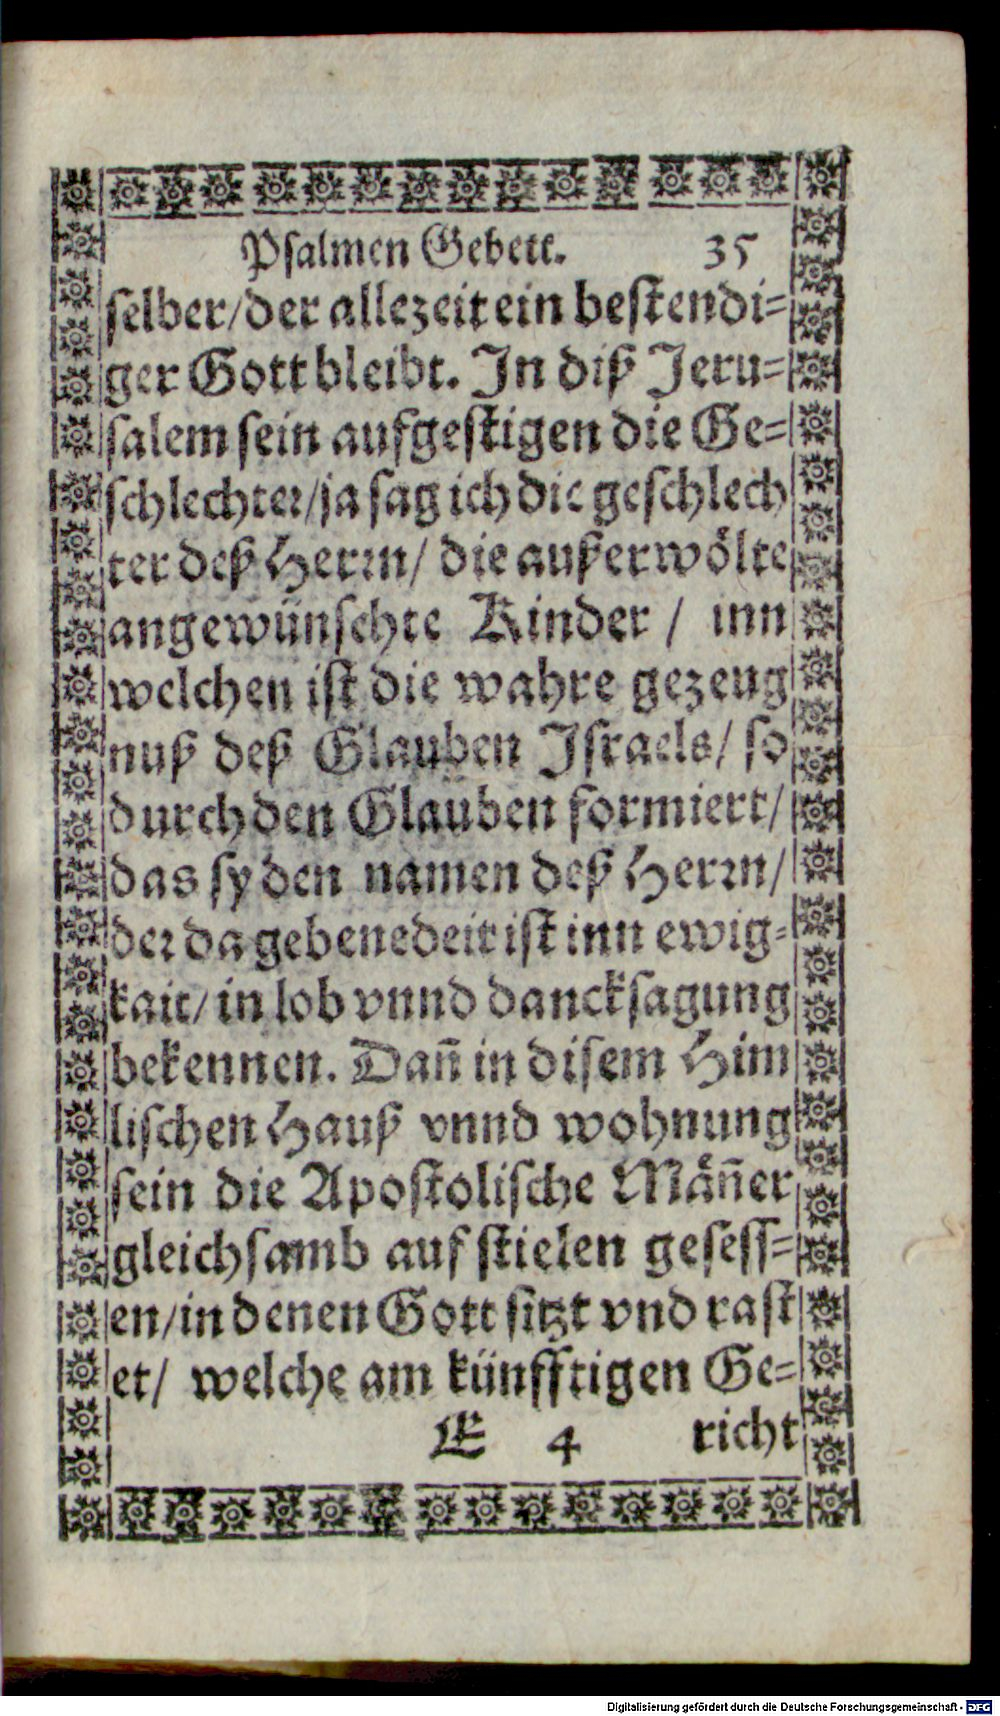 Psalmen Gebett. 35
selber/der allezeit ein bestendi=
ger Gott bleibt. In diß Jeru=
salem sein aufgestigen die Ge=
schlechter/ja sag ich die geschlech
ter deß Herrn/ die außerwölte
angewünschte Kinder / inn
welchen ist die wahre gezeug
nuß deß Glauben Israels/ so
durch den Glauben formiert/
das sy den namen deß Herrn/
der da gebenedeit ist inn ewig=
kait/ in lob vnnd dancksagung
bekennen. Dañ in disem Him
lischen Hauß vnnd wohnung
sein die Apostolische Mäñer
gleichsamb auf stielen gesess=
en/in denen Gott sitzt vnd rast
et/ welche am künfftigen Ge=
E 4 richt
Digitalisierung gefördert durch die Deutsche Forschungsgemeinschaft - DFG